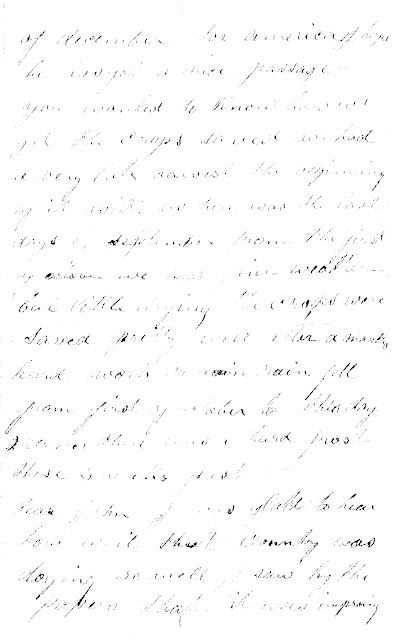 of december for america I hope
he injoyed a nice passage
you wanted to know how we
got the crops saved we had
a very late harvest the beginning
of it with us here was the last
days of september from the first
of we had fine weather
but little drying the crops were
saved pretty well after a months
hard work no rain fell
from first of october to this day
there was a hard frost
these weeks past
Dear John I was glad to hear
how well that Country was
doying so well I saw by the
papers that it was improving